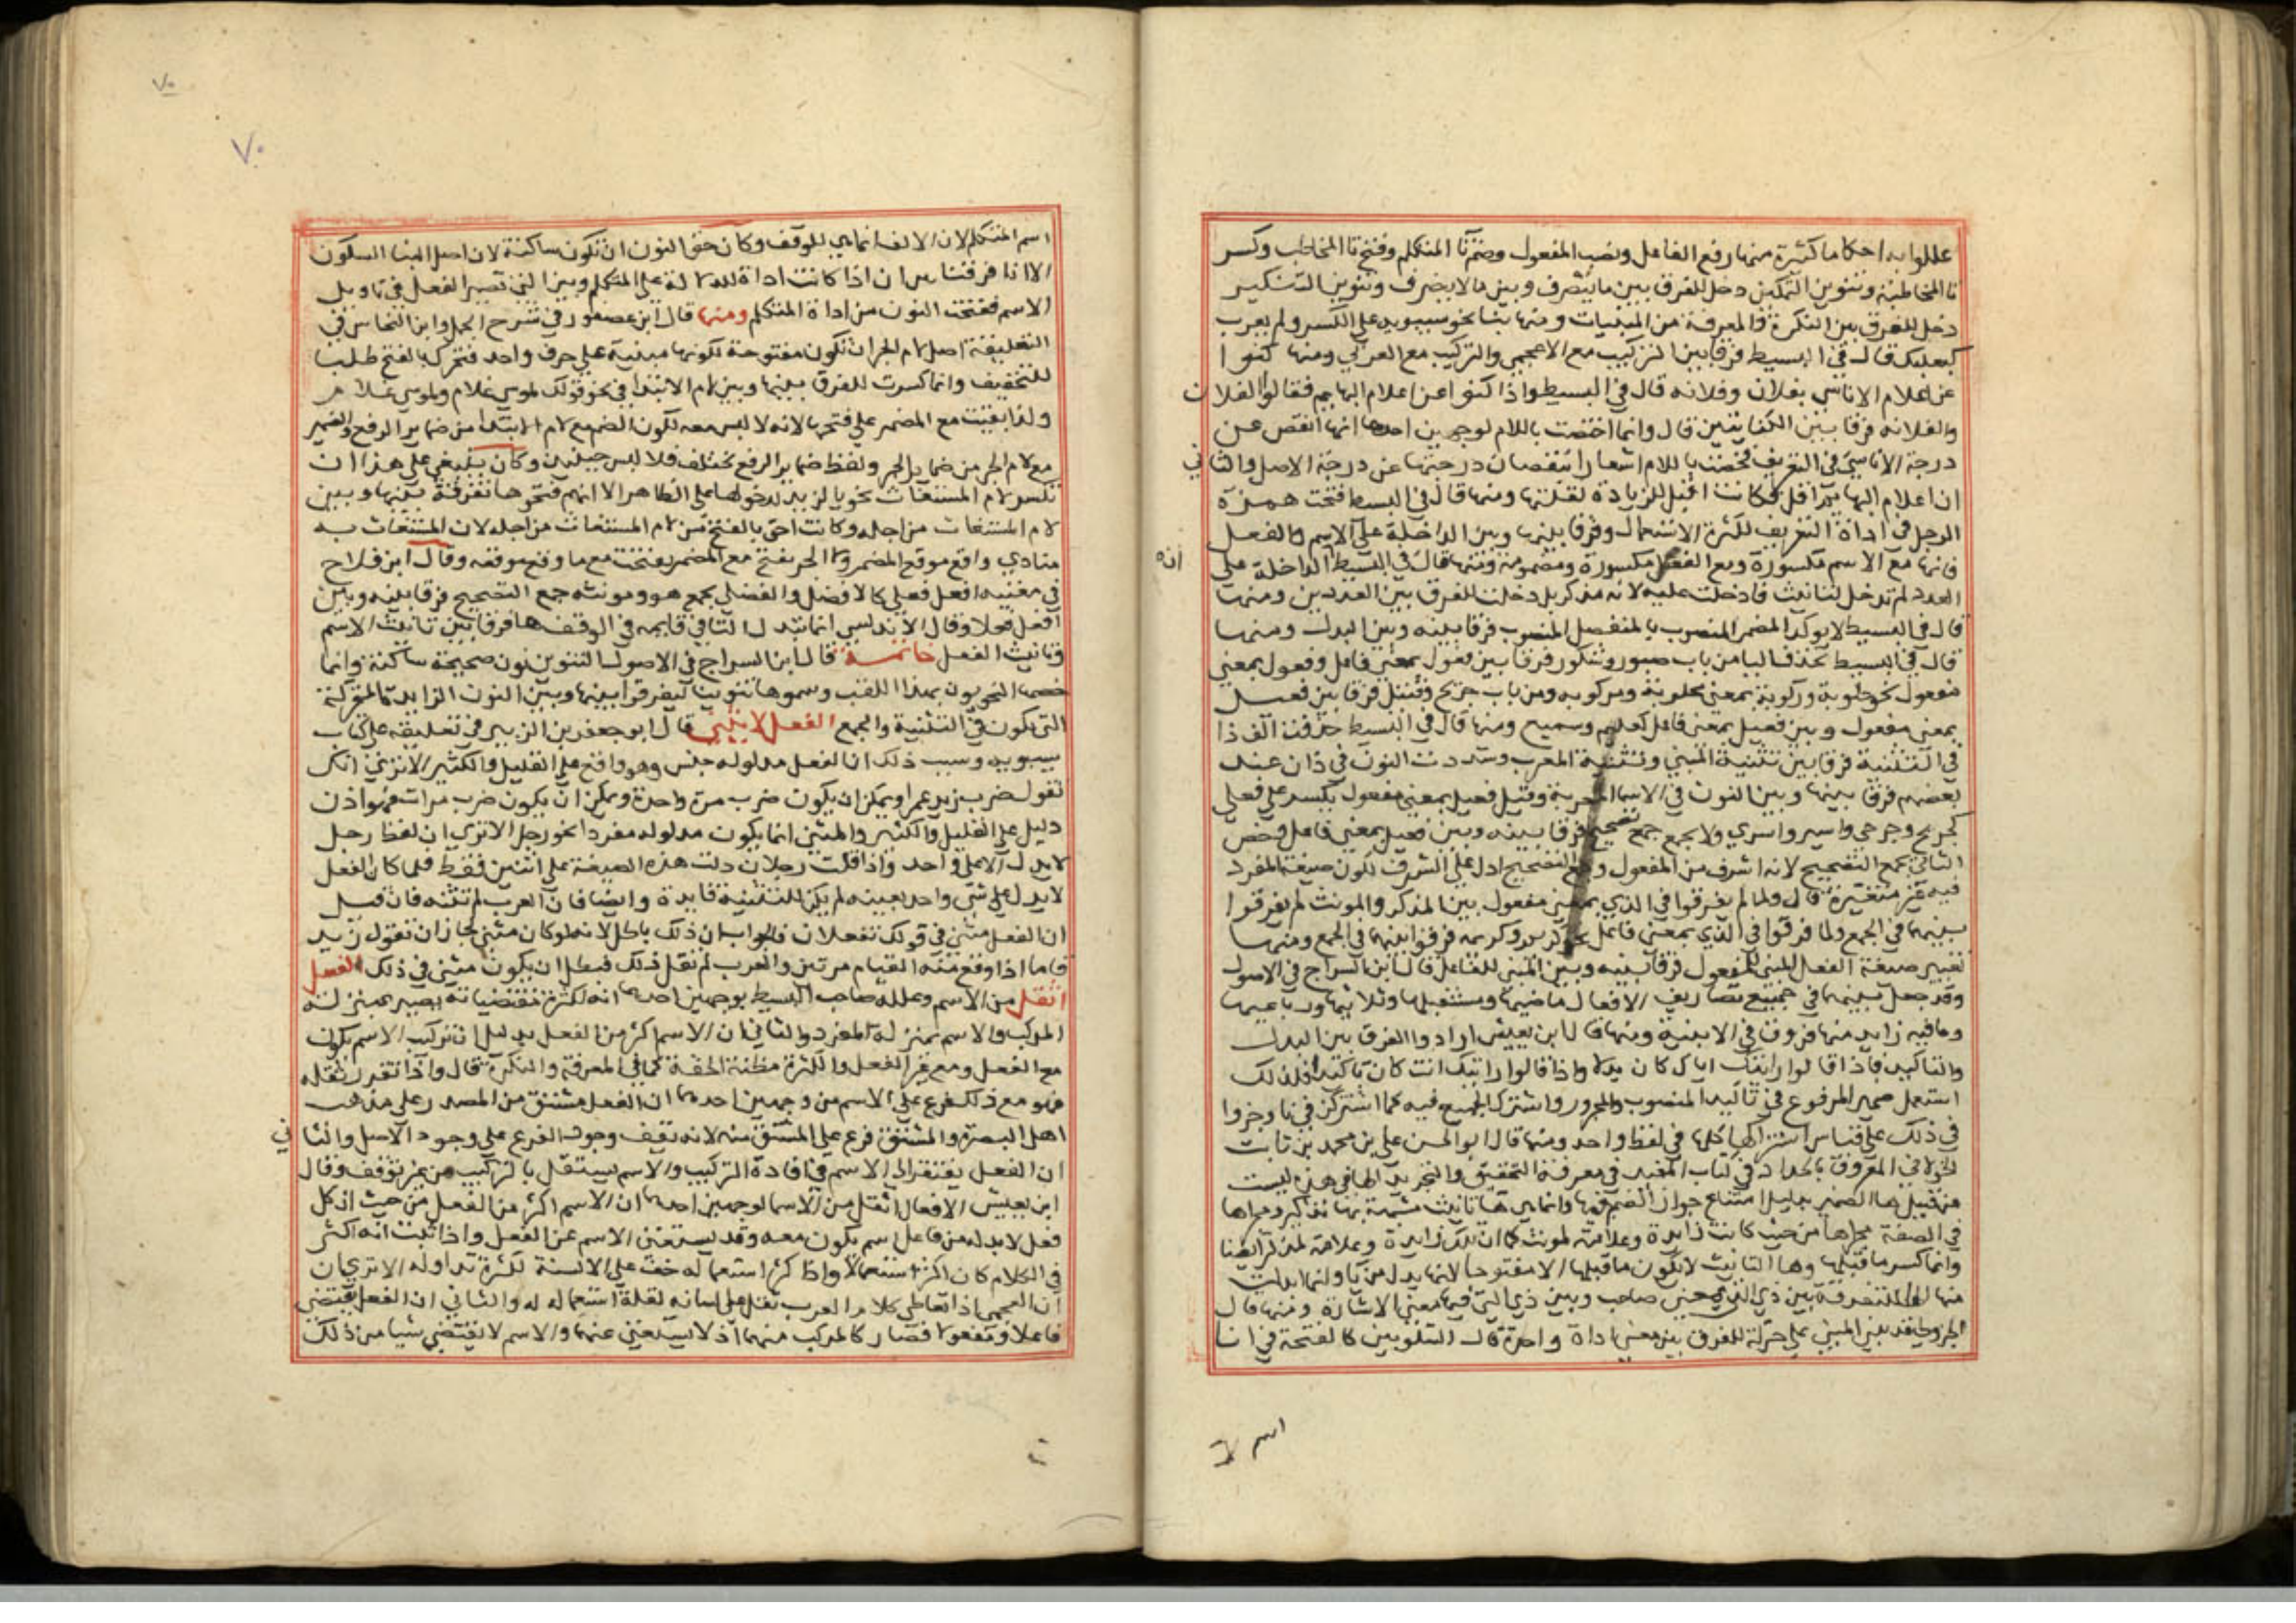 عللوا به احكاما كثيرة منها رفع الفاعل ونصب المفعول وضم تا المتكلم وفتح تا المخاطب وكسر
تا المخاطبة وتنوين التمكين دخل للفرق بين ما ينصرف وبين ما لا ينصرف وتنوين التنكير
دخل للفرق بين النكرة والمعرفة من المبنيات ومنها بنا نحو سيبويه على الكسر ولم يعرب
كبعلبك قال في البسيط فرقا بين التركيب مع الاعجمي والتركيب مع العربي ومنها كنوا
عن اعلام الاناسي بفلان وفلانه قال في البسيط واذا كنوا عن اعلام البهايم فقالوا الفلان
والفلانه فرقا بين الكنايتين قال وانما اختصت باللام لوجهين احدهما انها انقص عن
درجة الاناسي في التعريف فخصت باللام اشعارا بنقصان درجتها عن درجة الاصل والثاني
ان اعلام البهايم اقل فكانت اقبل للزيادة لقلتها ومنها قال في البسيط فتحت همزة
الوصل في اداة التعريف لكثرة الاستعمال وفرقا بينها وبين الداخلة على الاسم والفعل
فانها مع الاسم مكسورة ومع الفعل مكسورة ومضمومة ومنها قال في البسيط الداخلة على
انه
العدد لم تدخل لتانيث ما دخلت عليه لانه مذكر بل دخلت للفرق بين العددين ومنها
قال في البسيط لا يوكد المضمر المنصوب بالمنفصل المنصوب فرقا بينه وبين البدل ومنها
قال في البسيط تحذف اليا من باب صبور وشكور فرقا بين فعول بمعنى فاعل وفعول بمعنى
مفعول نحو حلوبة وركوبة بمعنى محلوبة ومركوبه ومن باب جريح وقتيل فرقا بين فعيل
بمعنى مفعول وبين فعيل بمعنى فاعل كعليم وسميع ومنها قال في البسيط حذفت الف ذا
في التثنية فرقا بين تثنية المبني وتثنية المعرب وشددت النون في ذان عند
بعضهم فرقا بينها وبين النون في الاسما المعربة وقيل فعيل بمعنى مفعول يكسر على فعلى
كجريح وجرحى واسير واسرى ولا يجمع جمع تصحيح فرقا بينه وبين فعيل بمعنى فاعل وخص
الثاني بجمع التصحيح لانه اشرف من المفعول وجمع التصحيح ادل على الشرف لكون صيغة المفرد
فيه غير متغيرة قال ولما لم يفرقوا في الذي بمعنى مفعول بين المذكر والمونث لم يفرقوا
بينهما في الجمع ولما فرقوا في الذي بمعنى فاعل نحو كريم وكريمه فرقوا بينهما في الجمع ومنها
تغيير صيغة الفعل المبني للمفعول فرقا بينه وبين المبني للفاعل قال ابن السراج في الاصول
وقد جعل بينهما في جميع تصاريف الافعال ماضيها ومستقبلها وثلاثيها ورباعيها
وما فيه زايد منها فروق في الابنية ومنها قال ابن يعيش ارادوا الفرق بين البدل
والتاكيد فاذا قالوا رايتك اياك كان بدلا واذا قالوا رايتك انت كان تاكيدا فلذلك
استعمل ضمير المرفوع في تاكيد المنصوب والمجرور واشترك الجميع فيه كما اشتركن في نا وجروا
في ذلك على قياس اشتراكها كلها في لفظ واحد ومنها قال ابو الحسن علي بن محمد بن ثابت
الخولاني المعروف بالحداد في كتاب المفيد في معرفة التحقيق والتجريد الها في هذه ليست
من قبيل ها الضمير بدليل امتناع جواز الضم فيها وانما هي ها تانيث مشبهة بها تذكير ومجراها
في الصفة مجراها من حيث كانت زايدة وعلامة لمونث كما ان تلك زايدة وعلامة لمذكر ايضا
وانما كسر ما قبلها وها التانيث لا يكون ما قبلها الا مفتوحا لانها بدل من يا وانما ابدلت
منها الها للتفرقة بين ذي التي بمعنى صاحب وبين ذي التي فيها معنى الاشارة ومنها قال
الجزولي قد بين المبني على حركة للفرق بين معنى اداة واحدة قال الشلوبين كالفتحة في انا
اسم لا
٧٠
٧٠
اسم المتكلم لان الالف انما هي للوقف وكان حق النون ان تكون ساكنة لان اصل البنا السكون
الا انا فرقنا بين ان اذا كانت اداة للدلالة على المتكلم وبين التي تصير الفعل في تاويل
الاسم ففتحت النون من اداة المتكلم ومنها قال ابن عصفور في شرح الجمل وابن النحاس في
التعليقة اصل لام الجر ان تكون مفتوحة لكونها مبنية على حرف واحد فتحرك بالفتح طلبا
للتخفيف وانما كسرت للفرق بينها وبين لام الابتدا في نحو قولك لموسى غلام ولموسى غلام
ولذا بقيت مع المضمر على فتحها لانه لا لبس معه لكون الضمير مع لام الابتدا من ضماير الرفع والضمير
مع لام الجر من ضماير الجر ولفظ ضماير الرفع مختلف فلا لبس حينيذ وكان ينبغي على هذا ان
تكسر لام المستغاث نحو يا لزيد لدخولها على الظاهر الا انهم فتحوها تفرقة بينها وبين
لام المستغاث من اجله وكانت احق بالفتح من لام المستغاث من اجله لان المستغاث به
منادي واقع موقع المضمر ولام الجر تفتح مع المضمر ففتحت مع ما وقع موقعه وقال ابن فلاح
في مغنيه افعل فعلى كالافضل والفضلى يجمع هو ومونثه جمع التصحيح فرقا بينه وبين
افعل فعلا وقال الاندلسي انما تبدل التا في قايمه في الوقف ها فرقا بين تانيث الاسم
وتانيث الفعل خاتمة قال ابن السراج في الاصول التنوين نون صحيحة ساكنة وانما
خصها النحويون بهذا اللقب وسموها تنوينا ليفرقوا بينها وبين النون الزايدة المتحركة
التي تكون في التثنية والجمع الفعل لا يثنى قال ابو جعفر بن الزبير في تعليقه على كتاب
سيبويه وسبب ذلك ان الفعل مدلوله جنس وهو واقع على القليل والكثير الا ترى انك
تقول ضرب زيد عمرا ويمكن ان يكون ضرب مرة واحدة ويمكن ان يكون ضرب مرات فهو اذن
دليل على القليل والكثير والمثنى انما يكون مدلوله مفردا نحو رجل الا ترى ان لفظ رجل
لا يدل الا على واحد واذا قلت رجلان دلت هذه الصيغة على اثنين فقط فلما كان الفعل
لا يدل على شي واحد بعينه لم يكن للتثنية فايدة وايضا فان العرب لم تثنه فان قيل
ان الفعل مثنى في قولك تفعلان فالجواب ان ذلك باطل لانه لو كان مثنى لجاز ان تقول زيد
قاما اذا وقع منه القيام مرتين والعرب لم تقل ذلك فبطل ان يكون مثنى في ذلك الفعل
اثقل من الاسم وعلله صاحب البسيط بوجهين احدهما انه لكثرة مقتضياته يصير بمنزلة
المركب والاسم بمنزلة المفرد والثاني ان الاسم اكثر من الفعل بدليل ان تركيب الاسم يكون
مع الفعل ومع غير الفعل والكثرة مظنة الخفة كما في المعرفة والنكرة قال واذا تقرر ثقله
فهو مع ذلك فرع على الاسم من وجهين احدهما ان الفعل مشتق من المصدر على مذهب
اهل البصرة والمشتق فرع على المشتق منه لانه يقف وجود الفرع على وجود الاصل والثاني
ان الفعل يفتقر الى الاسم في افادة التركيب والاسم يستقل بالتركيب من غير توقف وقال
ابن يعيش الافعال اثقل من الاسما لوجهين احدهما ان الاسم اكثر من الفعل من حيث ان كل
فعل لا بد له من فاعل اسم يكون معه وقد يستغني الاسم عن الفعل واذا ثبت انه اكثر
في الكلام كان اكثر استعمالا واذا كثر استعماله خف على الالسنة لكثرة تداوله الا ترى ان
ان العجمي اذا تعاطى كلام العرب ثقل على لسانه لقلة استعماله له والثاني ان الفعل يقتضي
فاعلا ومفعولا فصار كالمركب منهما اذ لا يستغني عنهما والاسم لا يقتضي شيا من ذلك